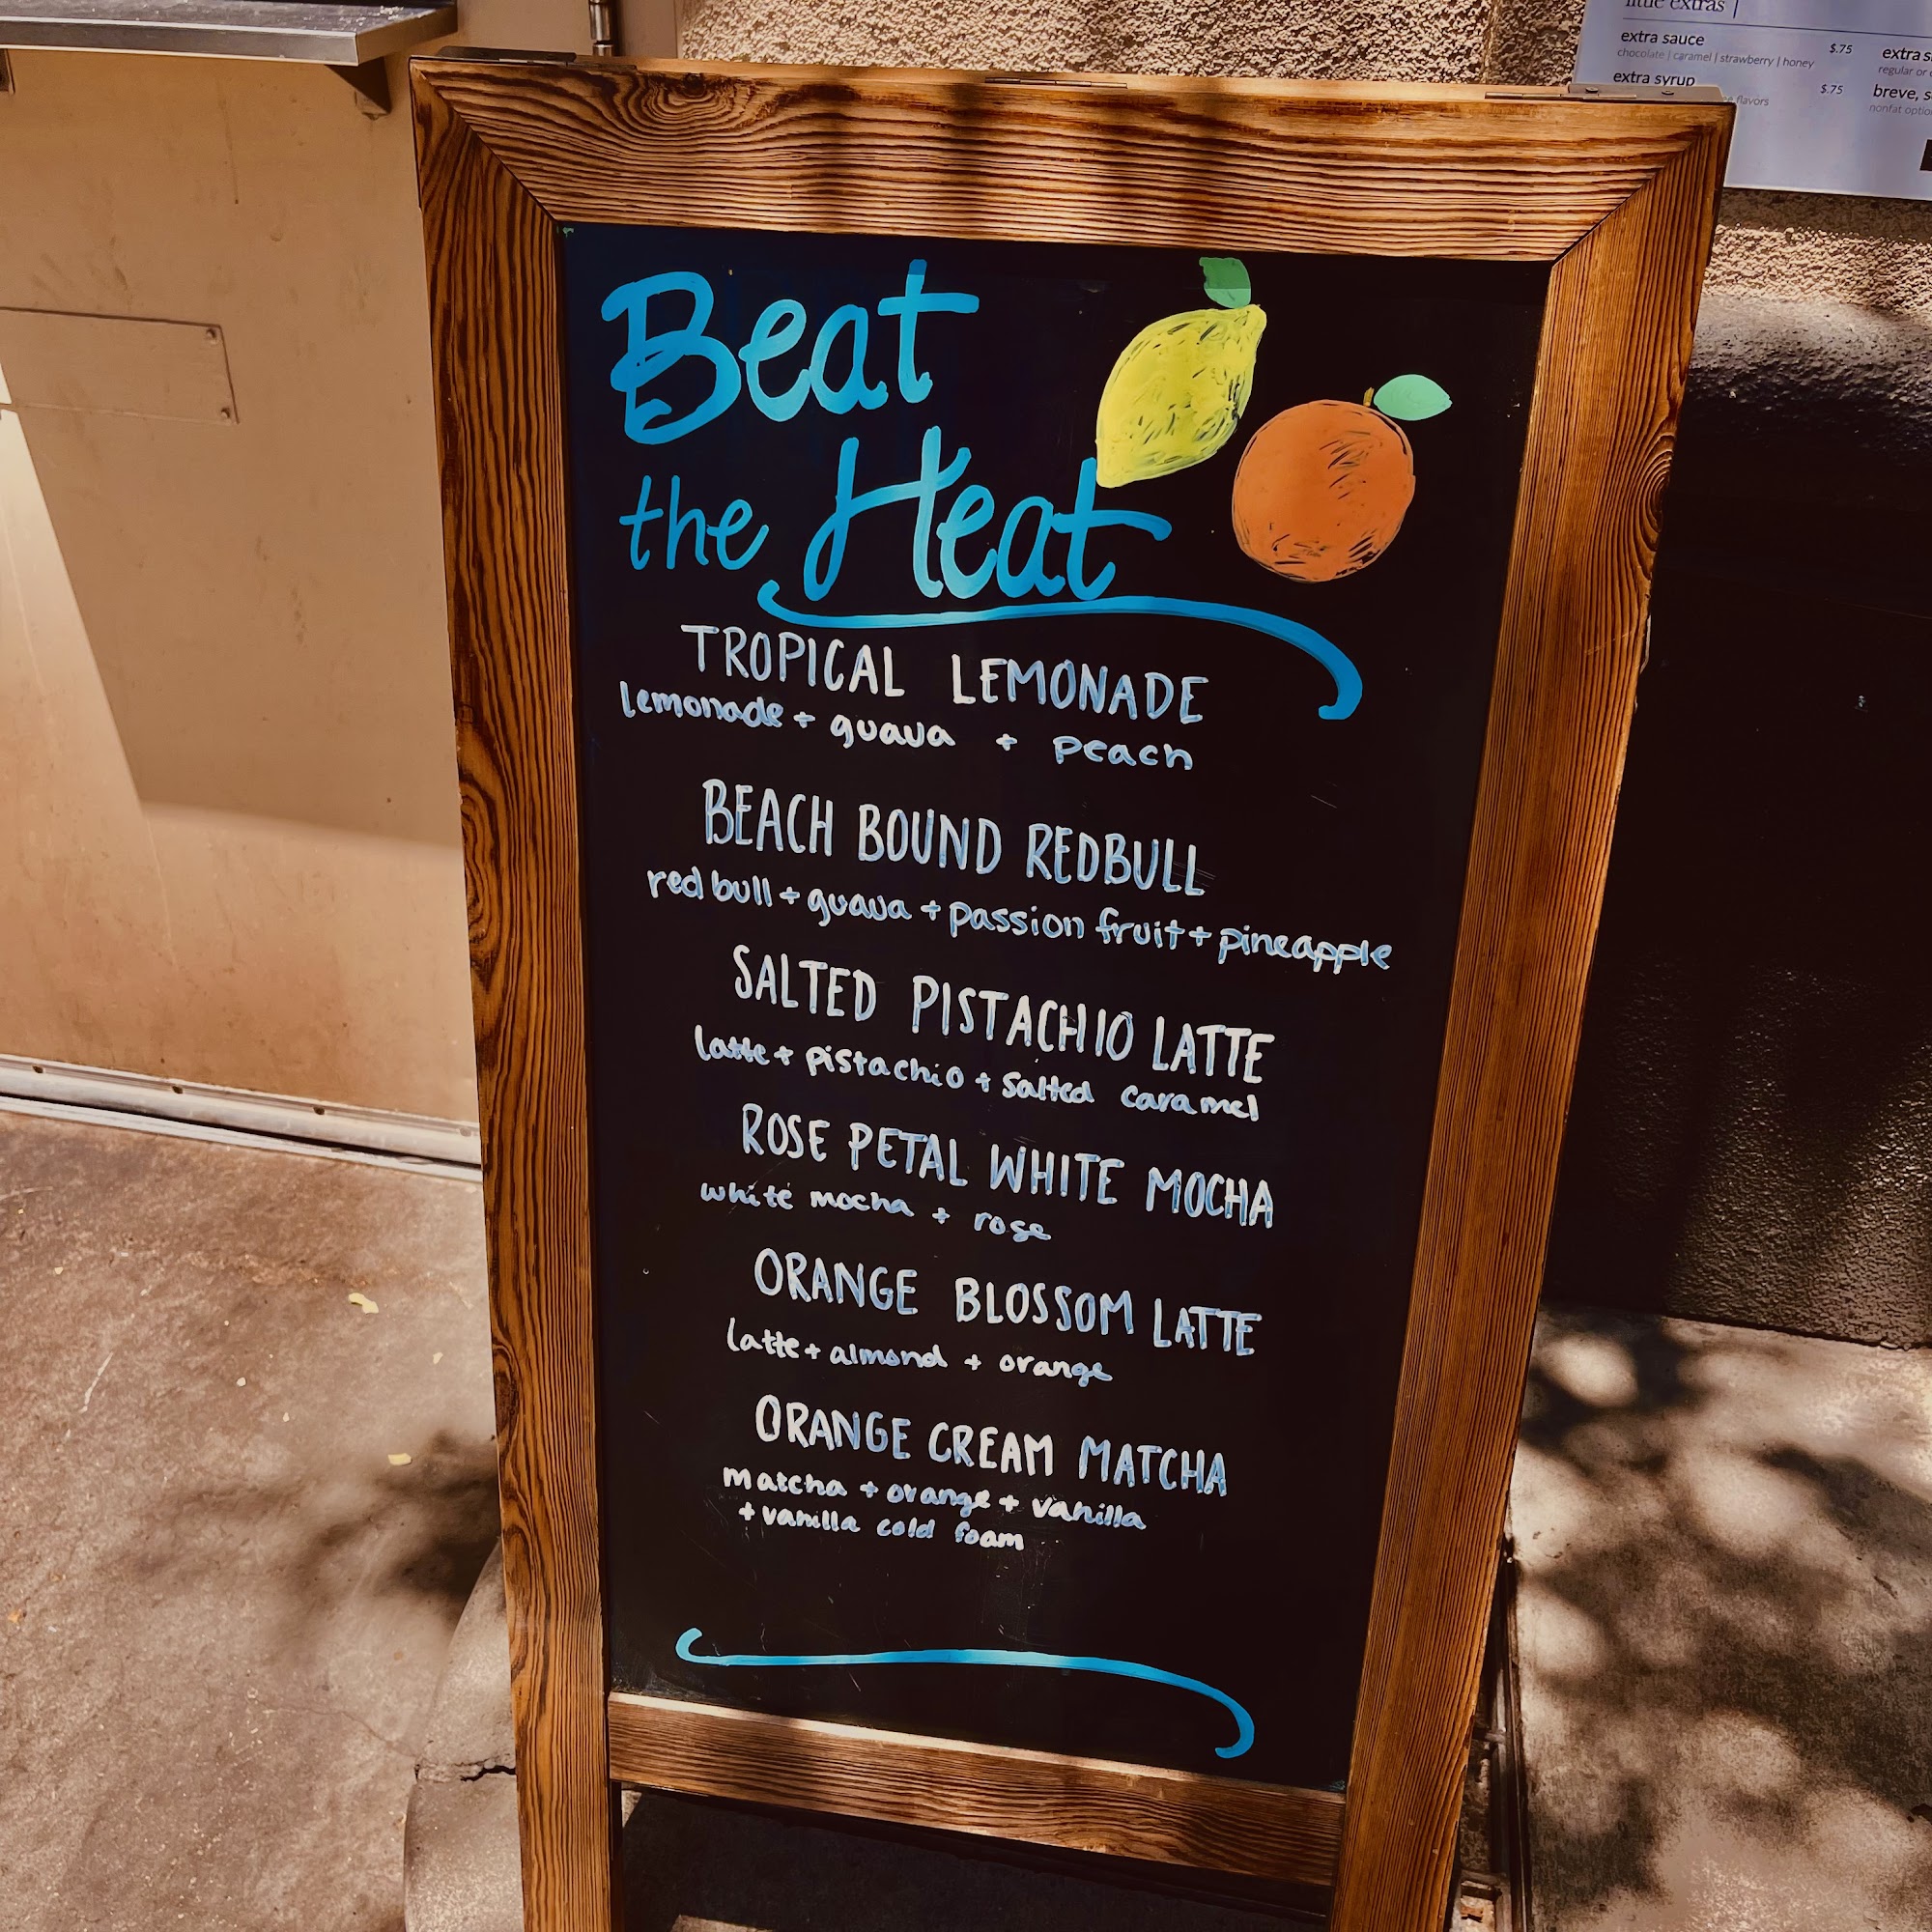 little extras
extra sauce $.75
chocolate | caramel | strawberry | honey
extra syrup $.75
flavors
extra
regular or
breve,
nonfat
Beat
the Heat
TROPICAL LEMONADE
lemonade + guava + peach
BEACH BOUND REDBULL
red bull + guava + passion fruit + pineapple
SALTED PISTACHIO LATTE
latte + pistachio + salted caramel
ROSE PETAL WHITE MOCHA
white mocha + rose
ORANGE BLOSSOM LATTE
latte + almond + orange
ORANGE CREAM MATCHA
matcha + orange + vanilla
+ vanilla cold foam